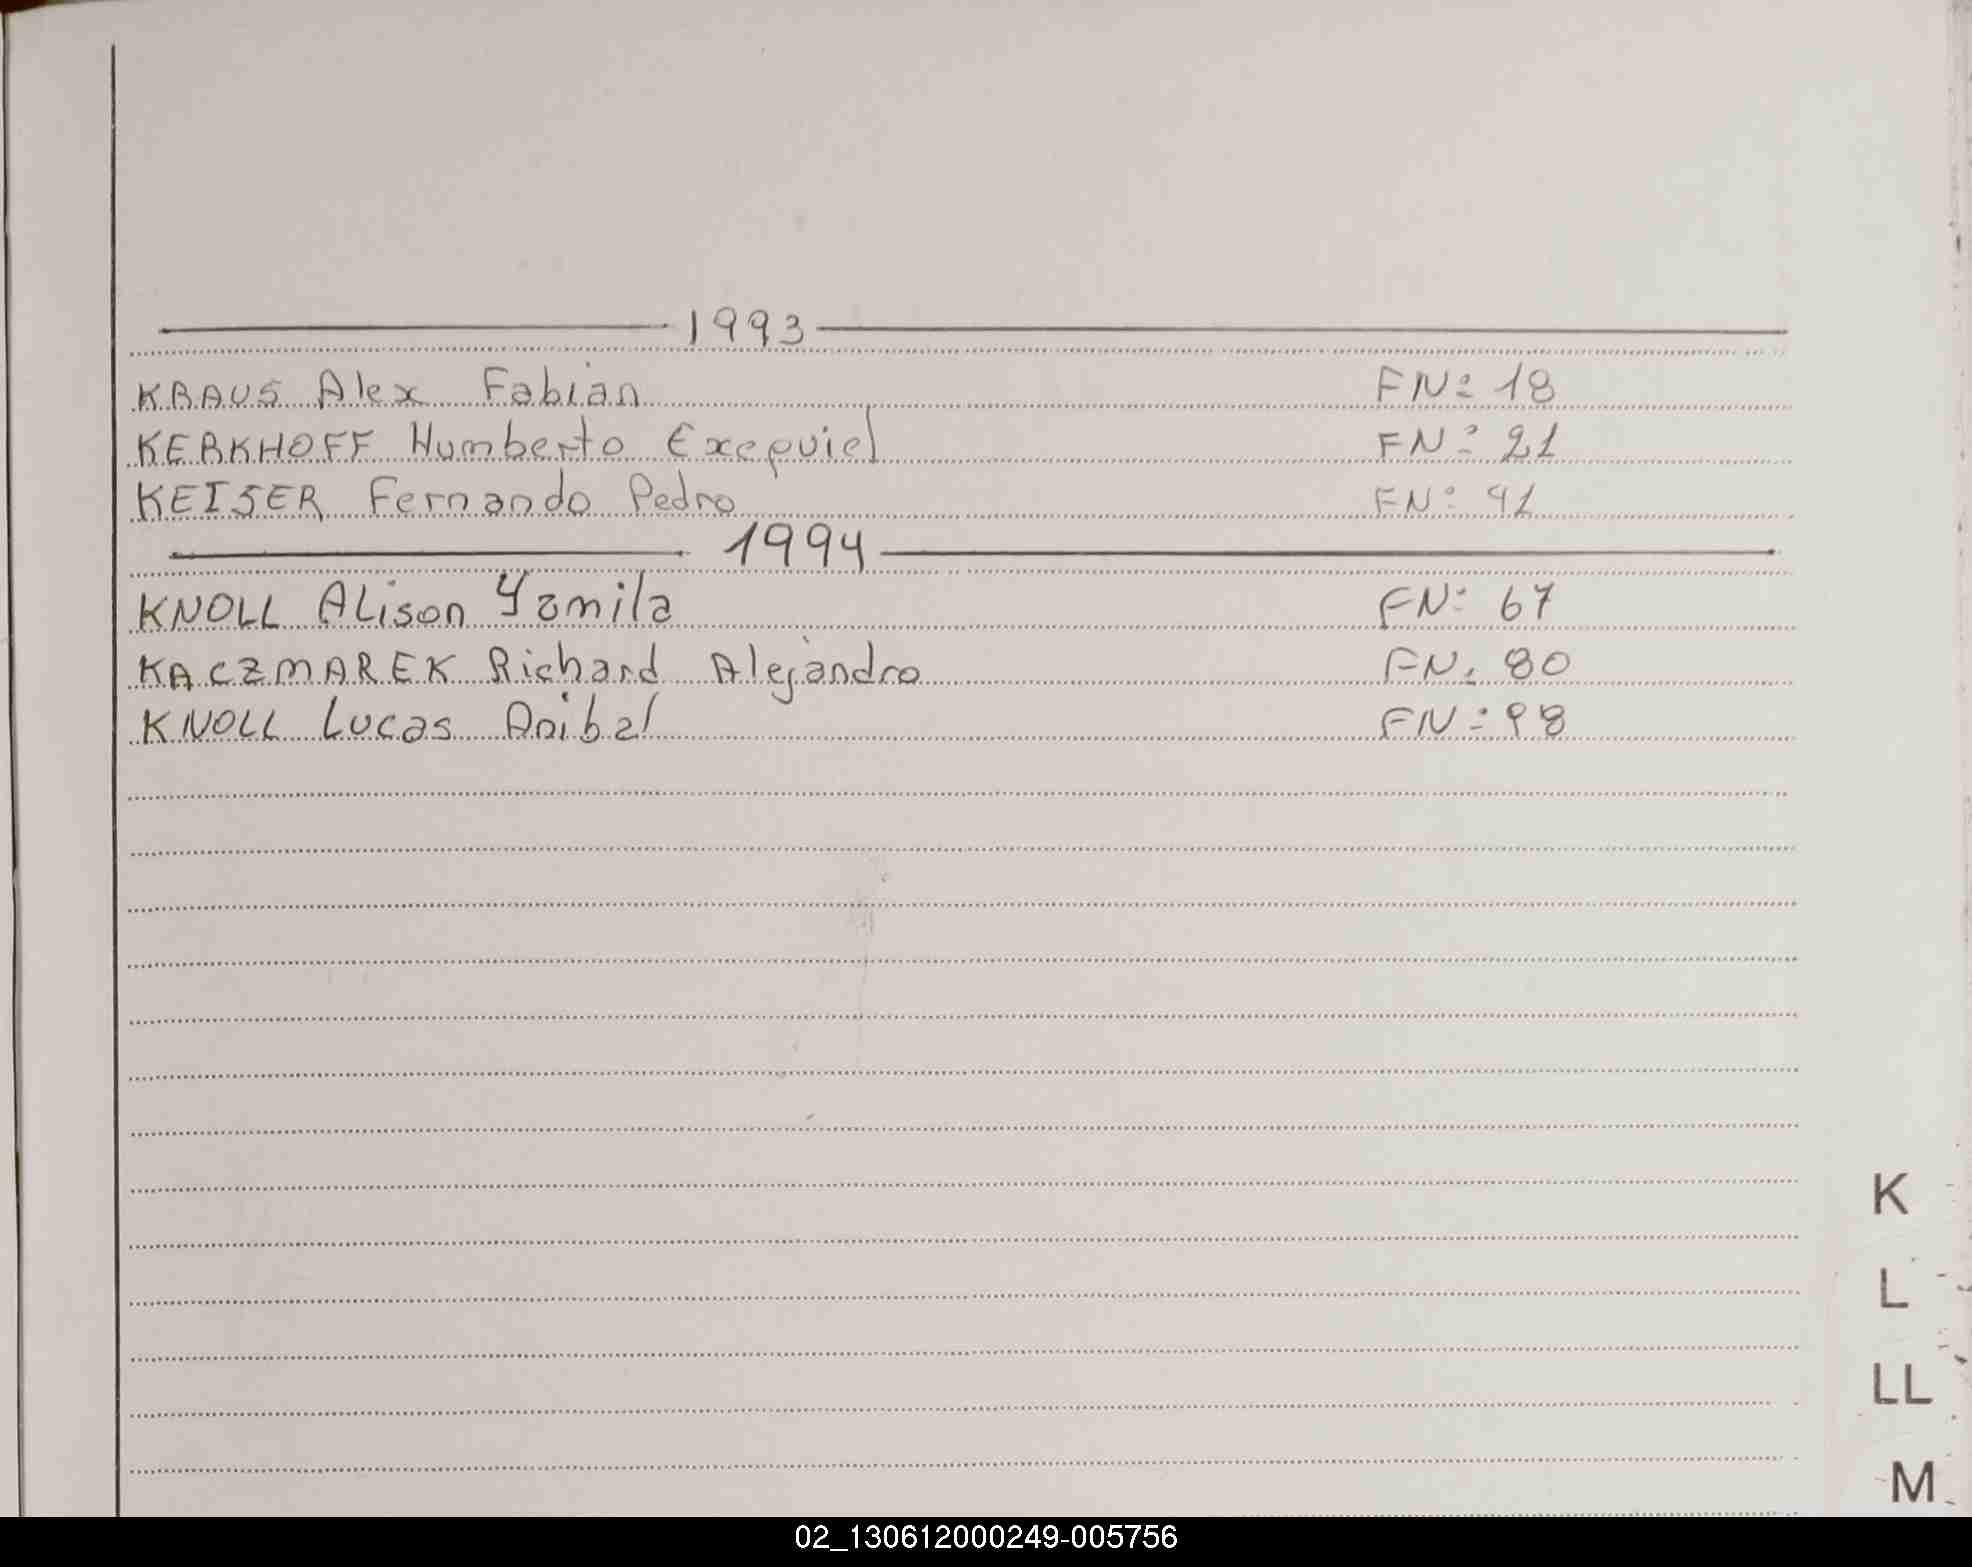 1993
KRAUS Alex Fabian FN: 18
KERKHOFF Humberto Exequiel FN: 21
KEISER Fernando Pedro FN: 41
1994
KNOLL Alison Yamila FN: 67
KACZMAREK Richard Alejandro FN: 80
KNOLL Lucas Anibal FN: 98
K
L
LL
M
02_130612000249-005756